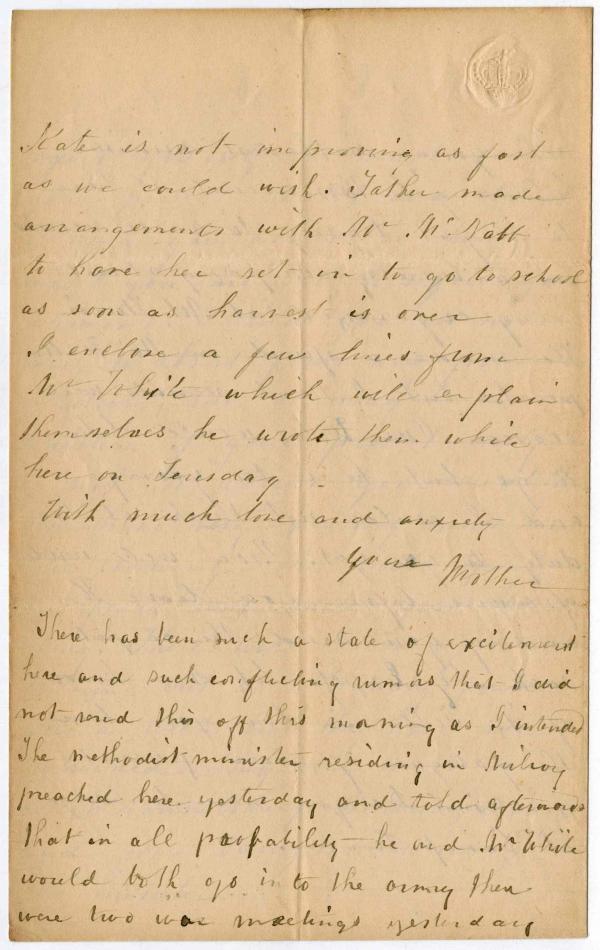 Kate is not improving as fast
as we could wish. Father made
arrangements with Mr McNabb
to have her set in to go to school
as soon as harvest is over
I enclose a few lines from
Mr White which will explain
themselves he wrote them while
here on Tuesday
With much love and anxiety
Your Mother
There has been such a state of excitement
here and such conflicting rumors that I did
not send this off this morning as I intended
The methodist minister residing in Milroy
preached here yesterday and told afterwards
that in all probability he and Mr White
would both go in to the army there
were two war meetings yesterday